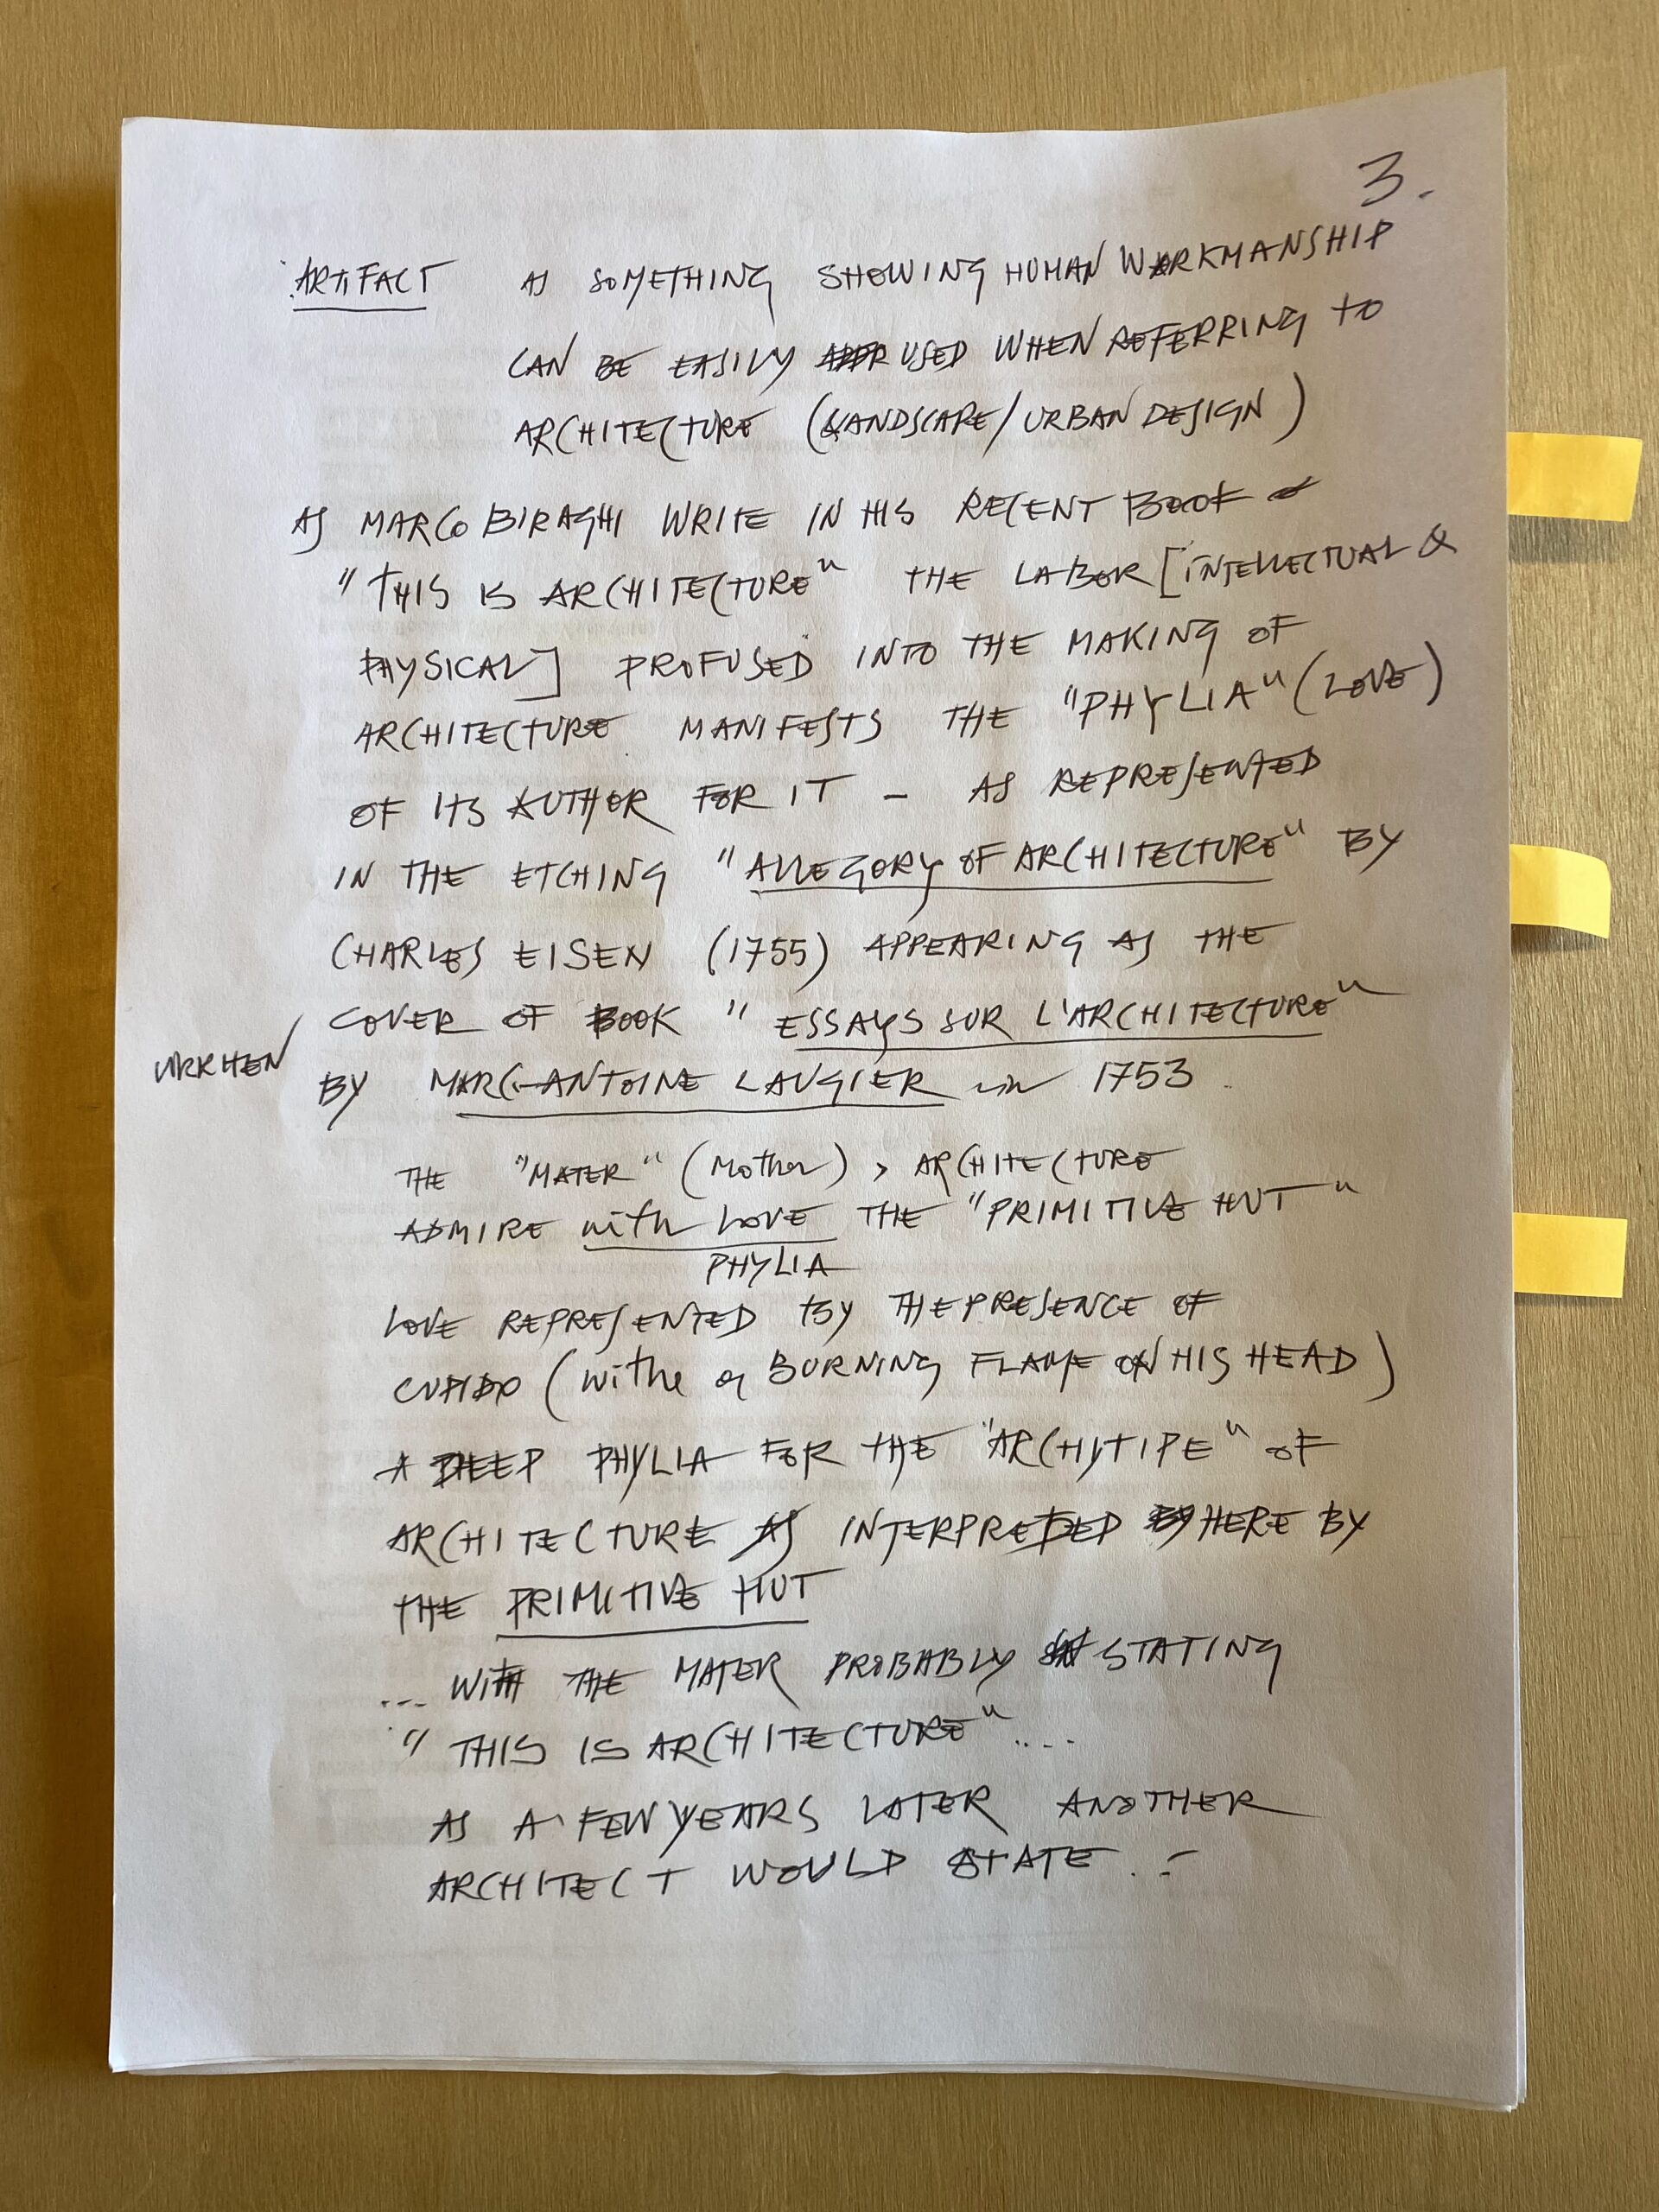 3.
ARTIFACT AS SOMETHING SHOWING HUMAN WORKMANSHIP
CAN BE EASILY USED WHEN REFERRING TO
ARCHITECTURE (&ANDSCAPE/URBAN DESIGN)
AS MARCO BIRAGHI WRITE IN HIS RECENT BOOK
"THIS IS ARCHITECTURE" THE LABOR [INTELLECTUAL &
PHYSICAL] PROFUSED INTO THE MAKING OF
ARCHITECTURE MANIFESTS THE "PHYLIA" (LOVE)
OF ITS AUTHOR FOR IT – AS REPRESENTED
IN THE ETCHING "ALLEGORY OF ARCHITECTURE" BY
CHARLES EISEN (1755) APPEARING AS THE
COVER OF BOOK "ESSAYS SUR L'ARCHITECTURE"
BY MARC-ANTOINE LAUGIER in 1753.
THE "MATER" (Mother) > ARCHITECTURE
ADMIRE with LOVE THE "PRIMITIVE HUT"
PHYLIA
LOVE REPRESENTED BY THE PRESENCE OF
CUPIDO (withe a BURNING FLAME ON HIS HEAD)
A DEEP PHYLIA FOR THE "ARCHYTIPE" OF
ARCHITECTURE AS INTERPRETED HERE BY
THE PRIMITIVE HUT
... WITH THE MATER PROBABLY STATING
"THIS IS ARCHITECTURE"....
AS A FEW YEARS LATER ANOTHER
ARCHITECT WOULD STATE. –